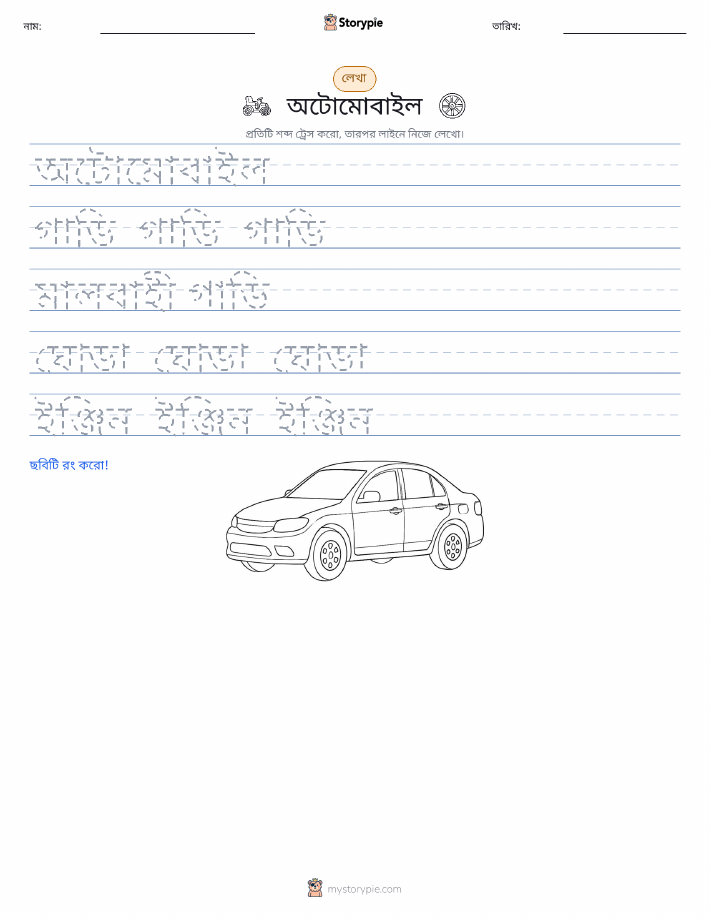 নাম:
Storypie
তারিখ:
লেখা
অটোমোবাইল
প্রতিটি শব্দ ট্রেস করো, তারপর লাইনে নিজে লেখো।
অটোমোবাইল
গাড়ি গাড়ি গাড়ি
মালবাহী গাড়ি
ঘোড়া ঘোড়া ঘোড়া
ইঞ্জিন ইঞ্জিন ইঞ্জিন
ছবিটি রং করো!
mystorypie.com